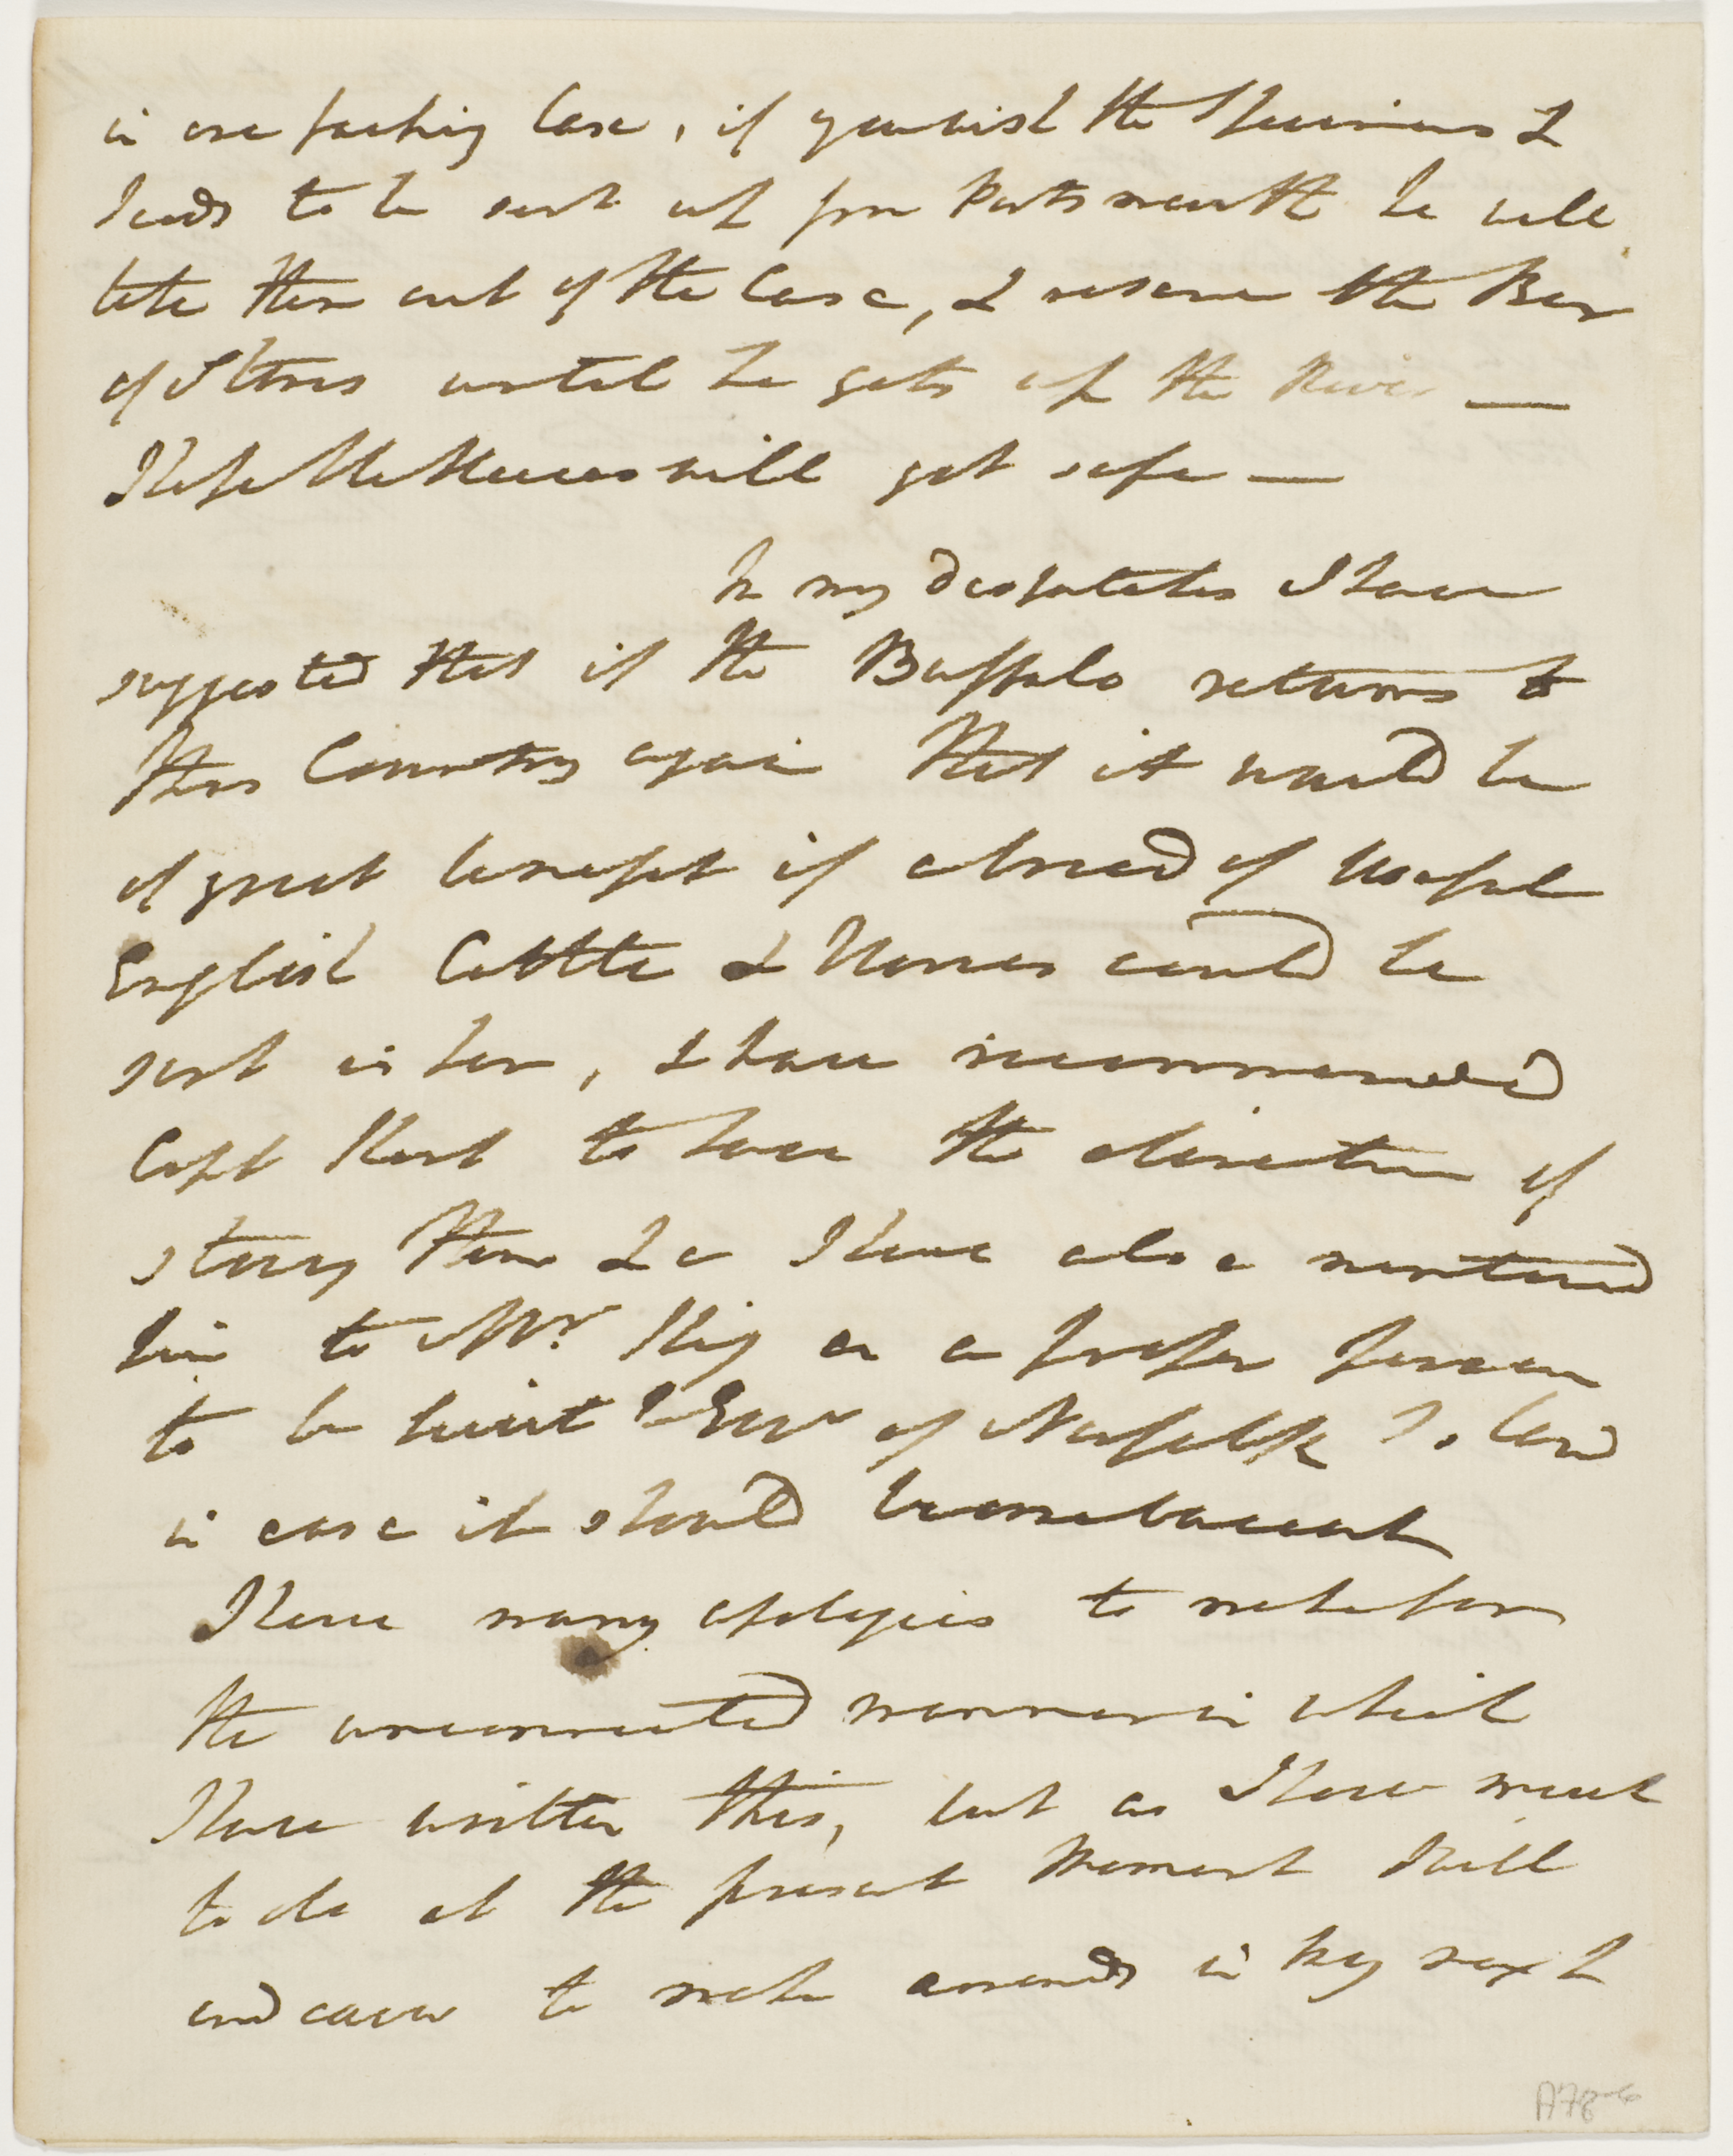 in one packing Case, if you wish the Specimens &
seeds to be sent up from Portsmouth he will
take them out of the Case, & reserve the Box
of Stones until he gets up the River —
I hope the will get safe —
In my despatches I have
suggested that if the Buffalo returns to
this Country again that it would be
of great benefit if a breed of Useful
English Cattle & Horses could be
sent in her, I have recommended
Capt Kent to have the direction of
them &c I have also mentioned
him to Mr. King as a proper person
to be Lt Govr of Norfolk Island
in case it should become vacant
I have many apologies to make for
the unconnected manner in which
I have written this, but as I have much
to do at the present Moment I will
endeavor to make amends in my next &
A78-6